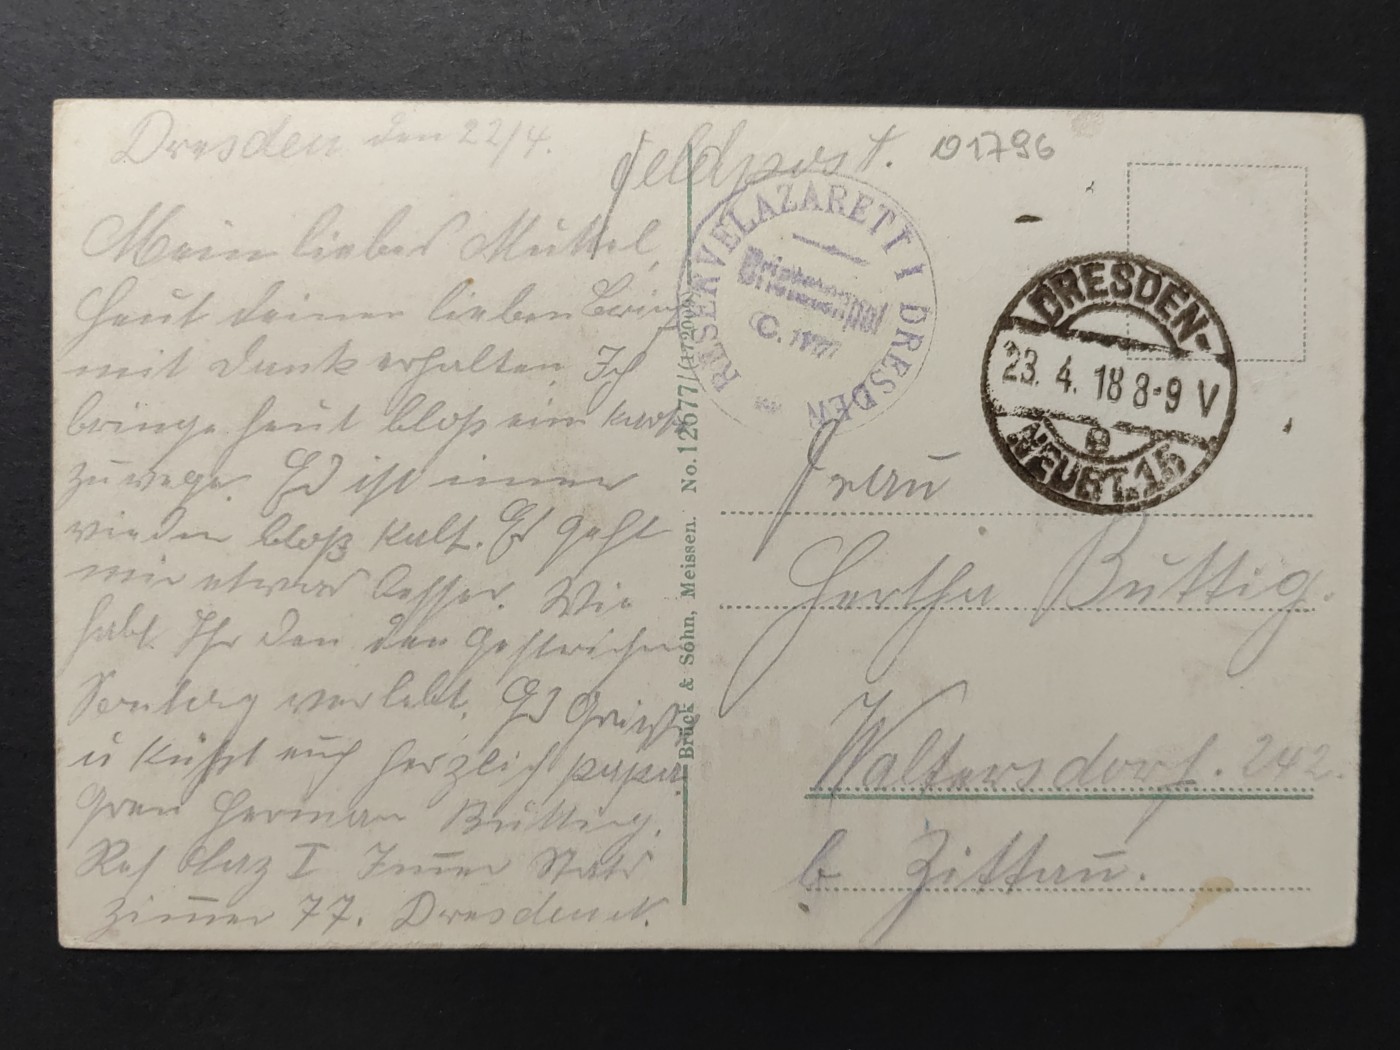 Dresden den 22/4.
Feldpost.
01796
Mein liebes Muttel,
Heut deinen lieben Brief
mit Dank erhalten. Ich
bringe heut bloß ein Karte
zuwege. Es ist immer
wieder bloß kalt. Es geht
mir etwas besser. Wie
habt Ihr den den gestrichen
Sontag verlebt. Es Grüßt
u Küßt euch herzlich papa
Gren Herman Büttig.
Res Laz I Inner Stadt
Zimmer 77. Dresden N.
Brück & Sohn, Meissen. No. 12677/(172009)
RESERVELAZARETT I DRESDEN
Briefstempel
DRESDEN-
23. 4. 18 8-9 V
e
NEUST. 15
Frau
Hertha Büttig.
Waltersdorf. 242.
b Zittau.